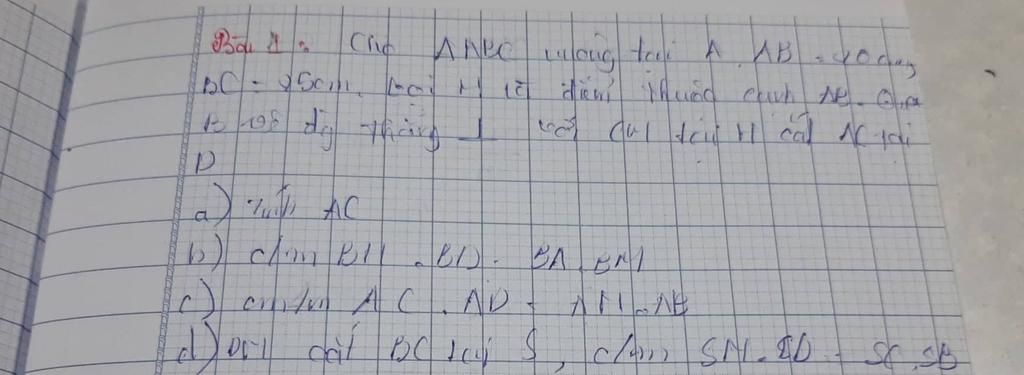 Bài 1: Cho ΔABC vuông tại A. AB = 20cm,
BC = 25cm. Gọi M là điểm thuộc cạnh AB. Qua
B kẻ đg thẳng ⊥ với CM tại H cắt AC tại
D
a) Tính AC
b) c/m BH . BD = BA . BM
c) c/m AC . AD = AM . AB
d) DM cắt BC tại S, c/m SM . SD = SC . SB